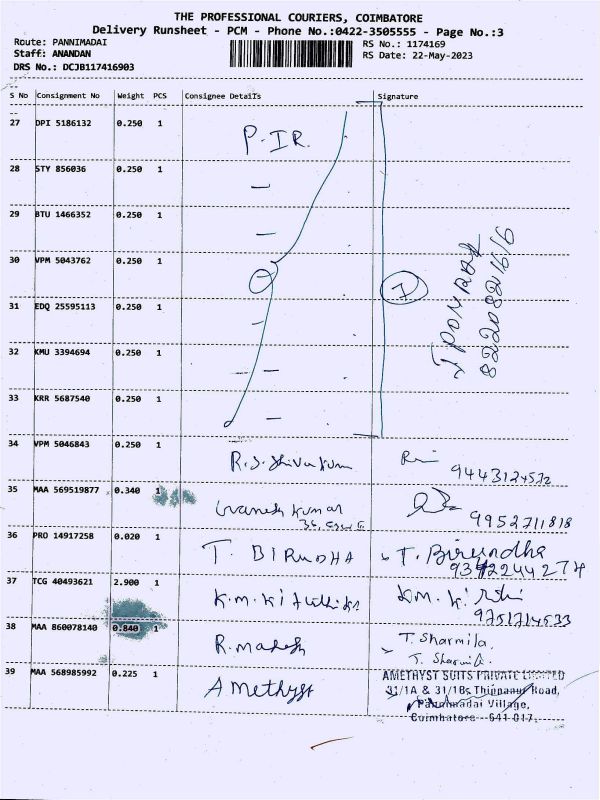 THE PROFESSIONAL COURIERS, COIMBATORE
Delivery Runsheet - PCM - Phone No.:0422-3505555 - Page No.:3
Route: PANNIMADAI RS No.: 1174169
Staff: ANANDAN RS Date: 22-May-2023
DRS No.: DCJB117416903
S No Consignment No Weight PCS Consignee Details Signature
27 DPI 5186132 0.250 1 P.IR.
28 STY 856036 0.250 1
29 BTU 1466352 0.250 1
30 VPM 5043762 0.250 1
I
8220821616
31 EDQ 25595113 0.250 1
32 KMU 3394694 0.250 1
33 KRR 5687540 0.250 1
34 VPM 5046843 0.250 1 R.S. Shivakum
9443124532
35 MAA 569519877 0.340 1 Ganesh Kumar
9952711818
36 PRO 14917258 0.020 1 T. BIRUDHA T. Birundha
9342244274
37 TCG 40493621 2.900 1 K.M.
9751714533
38 MAA 860078140 0.840 1 R. Madesh T. Sharmila.
T. Sharmila.
39 MAA 568985992 0.225 1 Amethyst AMETHYST SUITS PRIVATE LIMITED
31/1A & 31/1B, Thippanur Road,
Pannimadai Village,
Coimbatore - 641 017.